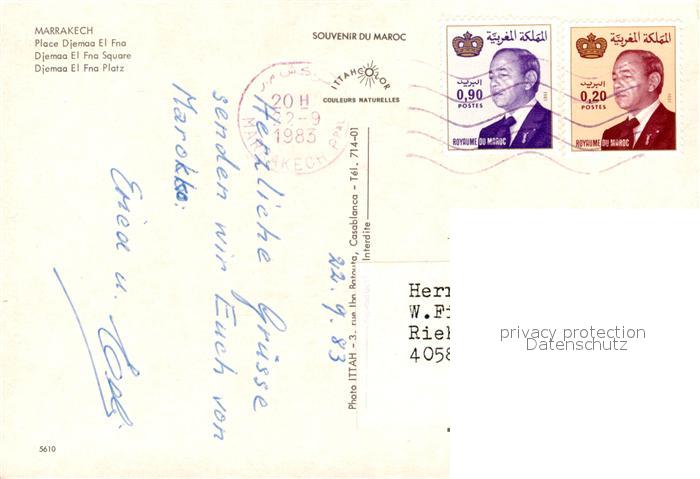 MARRAKECH
Place Djemaa El Fna
Djemaa El Fna Square
Djemaa El Fna Platz
SOUVENIR DU MAROC
ITTAHCOLOR
COULEURS NATURELLES
20 H
22-9
1983
MARRAKECH PPAL
المملكة المغربية
البريد
0,90
POSTES
ROYAUME DU MAROC
المملكة المغربية
البريد
0,20
POSTES
ROYAUME DU MAROC
22.9.83
Herzliche Grüsse
senden wir Euch von
Marokko.
Erica u.
Photo ITTAH - 3, rue Ibn Batouta, Casablanca - Tél. 714-01
Interdite
Herr
W.Fi
Rieh
4058
privacy protection
Datenschutz
5610